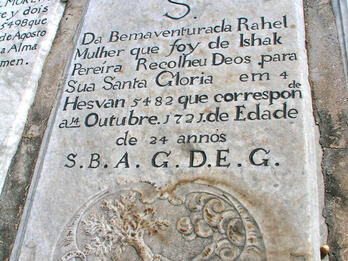 MOREN
re y dois
5498 que
de Agosto
a Alma
men.
S.
Da Bemaventurada Rahel
Mulher que foy de Ishak
Pereira Recolheu Deos para
Sua Santa Gloria em 4 de
Hesvan 5482 que correspon
a 14 Outubre. 1721. de Edade
de 24 annos
S. B. A. G. D. E. G.